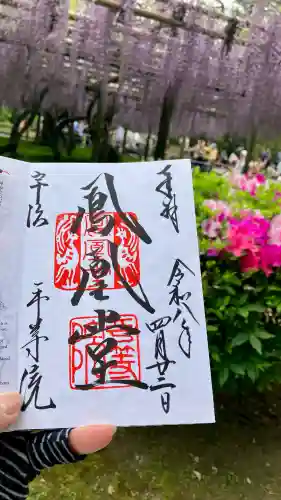 奉拝
令和八年
四月廿二日
鳳凰堂
宇治
平等院